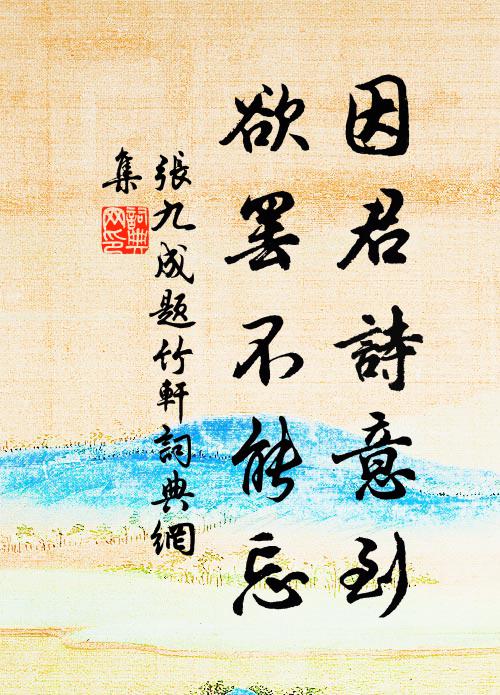 因君詩意到
欲罷不能忘
張九成題竹軒詞典網
集
詞典
网印